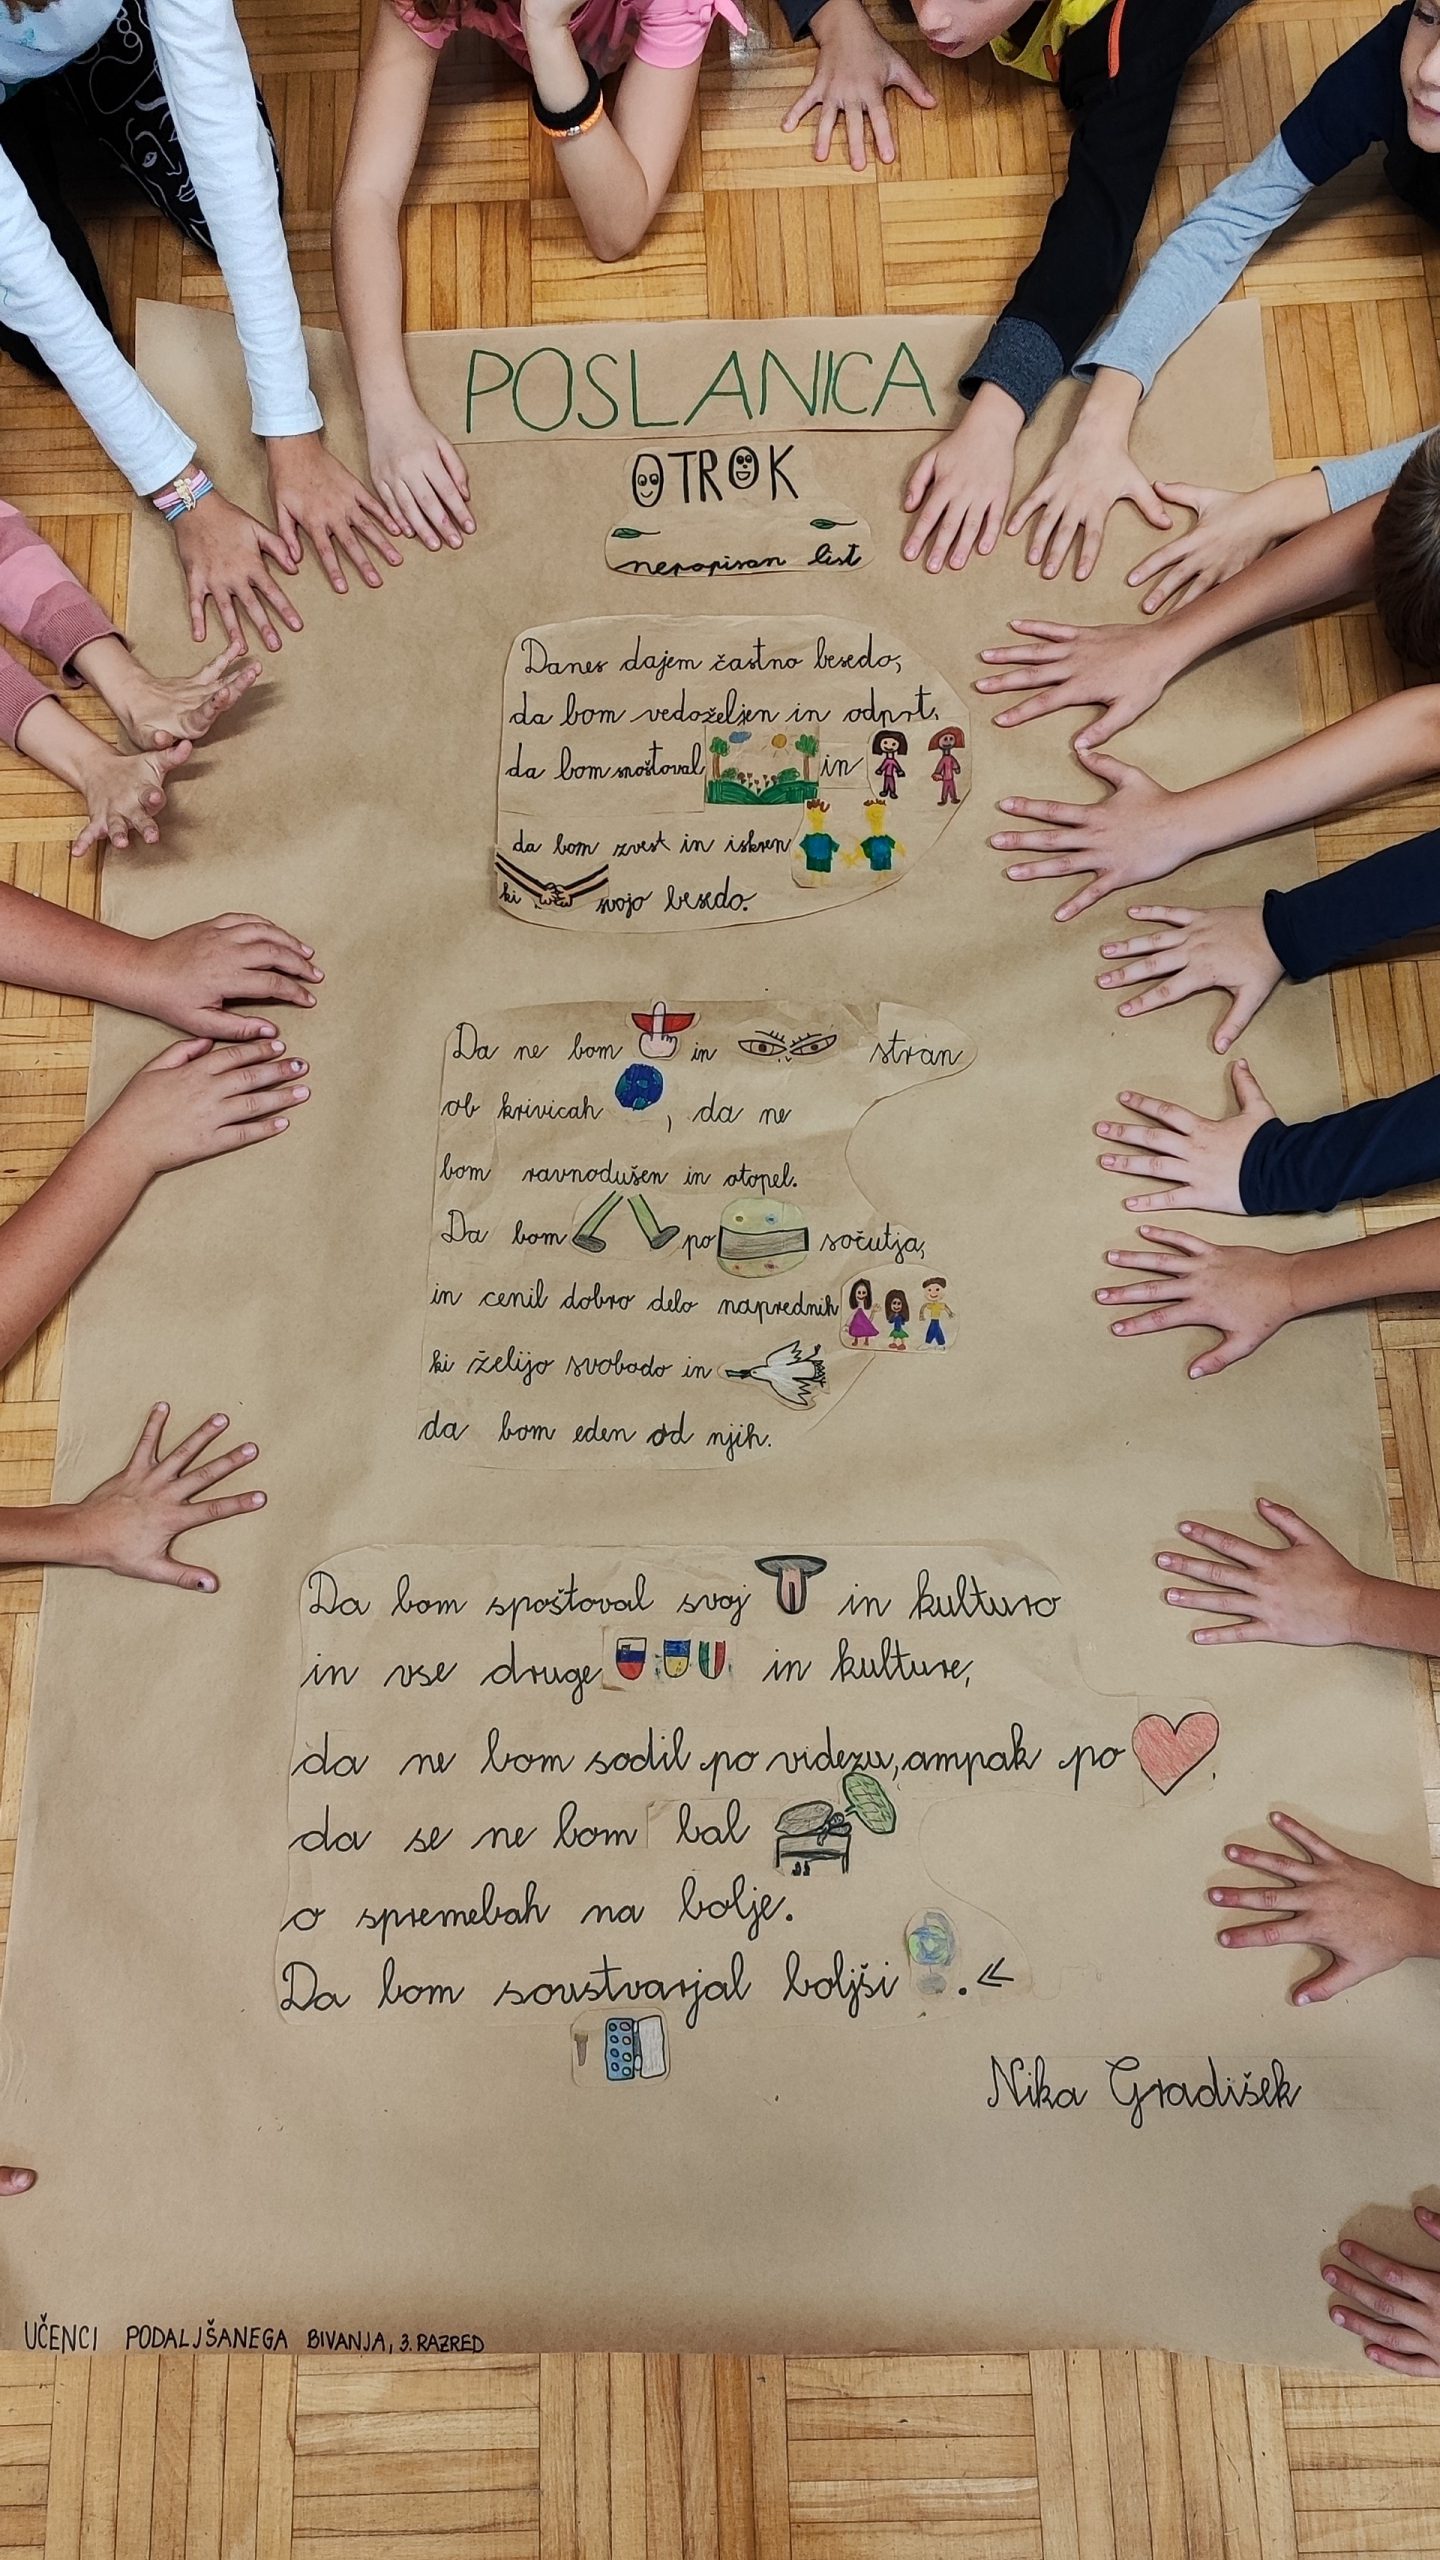 POSLANICA
OTROK
nepopisan list
Danes dajem častno besedo,
da bom vedoželjen in odprt,
da bom spoštoval in
da bom zvest in iskren
ki svojo besedo.
Da ne bom in stran
ob krivicah , da ne
bom ravnodušen in otopel.
Da bom po sočutja,
in cenil dobro delo naprednih
ki želijo svobodo in
da bom eden od njih.
Da bom spoštoval svoj in kulturo
in vse druge in kulture,
da ne bom sodil po videzu, ampak po .
da se ne bom bal
o spremebah na bolje.
Da bom soustvarjal boljši .«
Nika Gradišek
UČENCI PODALJŠANEGA BIVANJA, 3. RAZRED